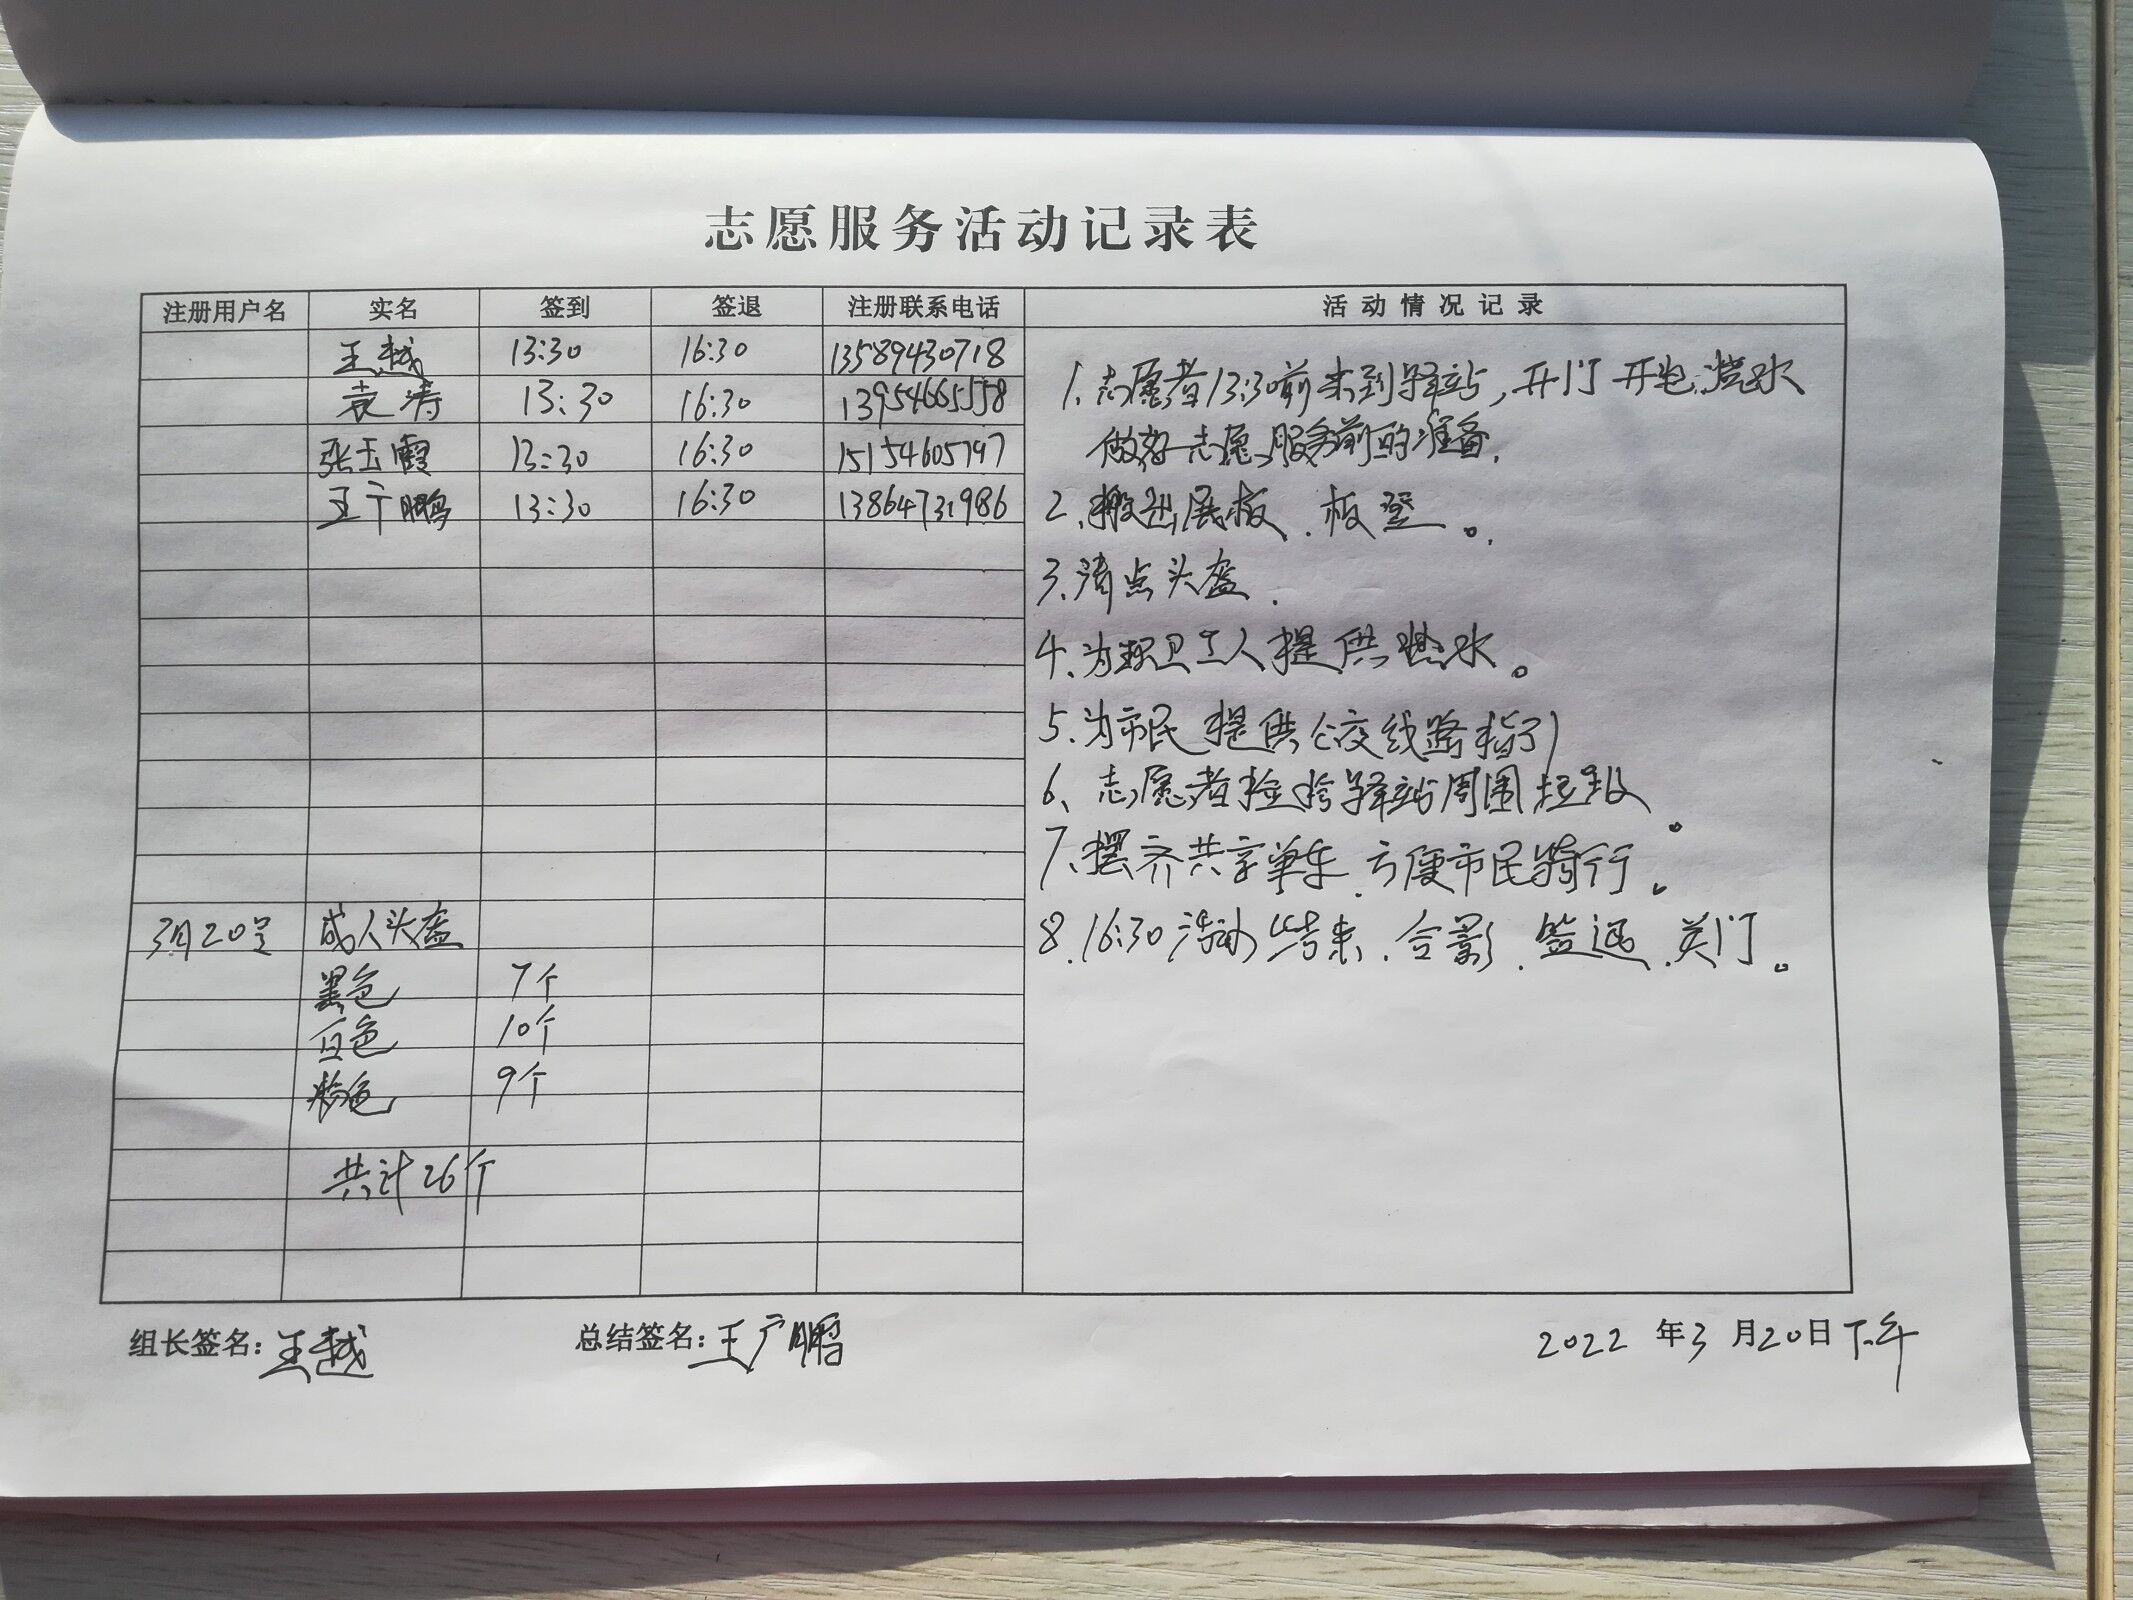 志愿服务活动记录表
注册用户名 实名 签到 签退 注册联系电话 活动情况记录
王越 13:30 16:30 13589430718
袁涛 13:30 16:30 13954665558
张玉霞 13:30 16:30 15154605797
王广鹏 13:30 16:30 13864731986
3月20号 成人头盔
黑色 7个
白色 10个
粉色 9个
共计26个
1、志愿者13:30前来到驿站,开门开电,烧水
做好志愿服务前的准备.
2、搬出展板、板登。
3、清点头盔.
4、为环卫工人提供热水。
5、为市民提供公交线路指引
6、志愿者捡拾驿站周围垃圾。
7、摆齐共享单车、方便市民骑行。
8、16:30活动结束、合影、签退、关门。
组长签名:王越 总结签名:王广鹏 2022年3月20日下午